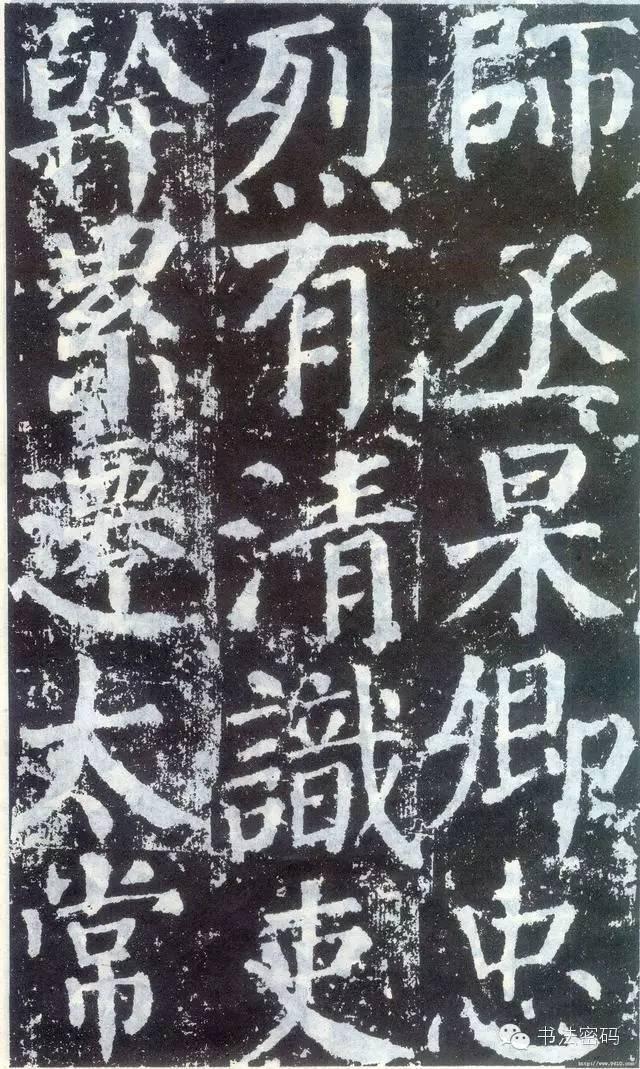 師丞杲卿忠
烈有清識吏
幹累遷太常
书法密码
http://www.9610.com